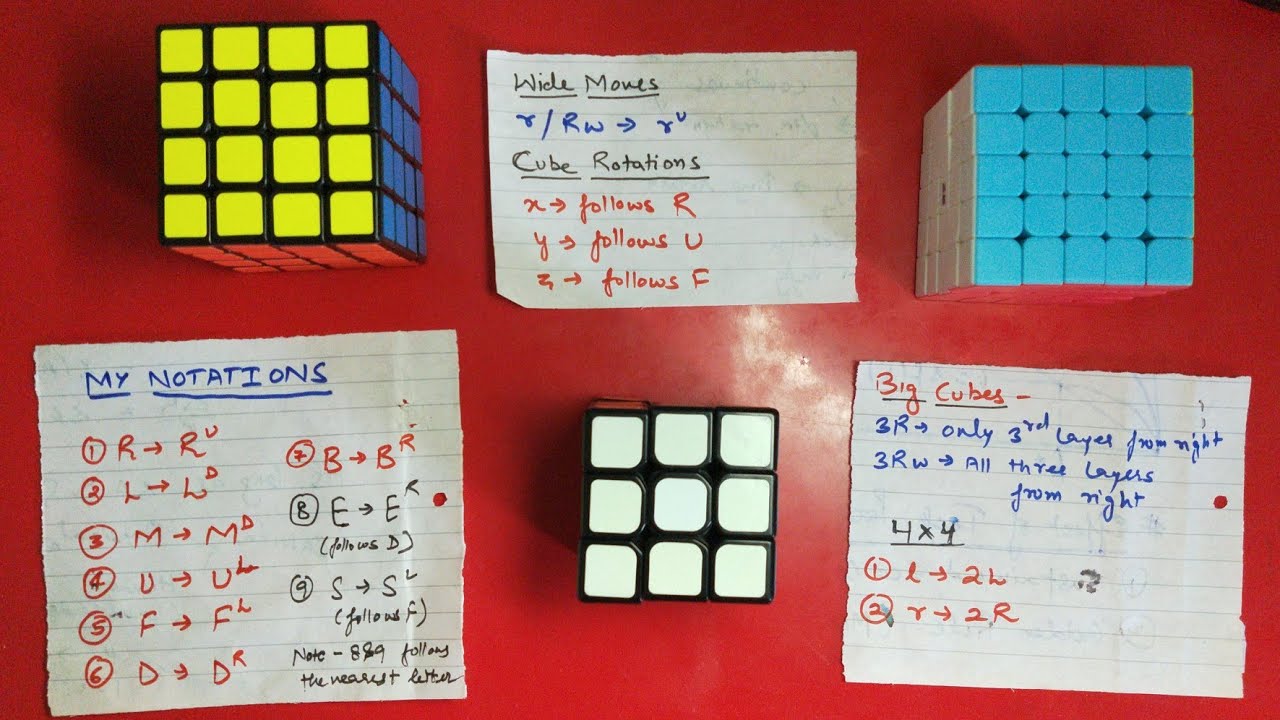 Wide Moves
r/Rw → rᵁ
Cube Rotations
x → follows R
y → follows U
z → follows F
MY NOTATIONS
① R → Rᵁ
② L → Lᴰ
③ M → Mᴰ
④ U → Uᴸ
⑤ F → Fᴸ
⑥ D → Dᴿ
⑦ B → Bᴿ
⑧ E → Eᴿ
(follows D)
⑨ S → Sᴸ
(follows F)
Note - 8&9 follows
the nearest letter
Big Cubes -
3R → only 3rd Layer from right
3Rw → All three Layers
from right
4x4
① l → 2L
② r → 2R